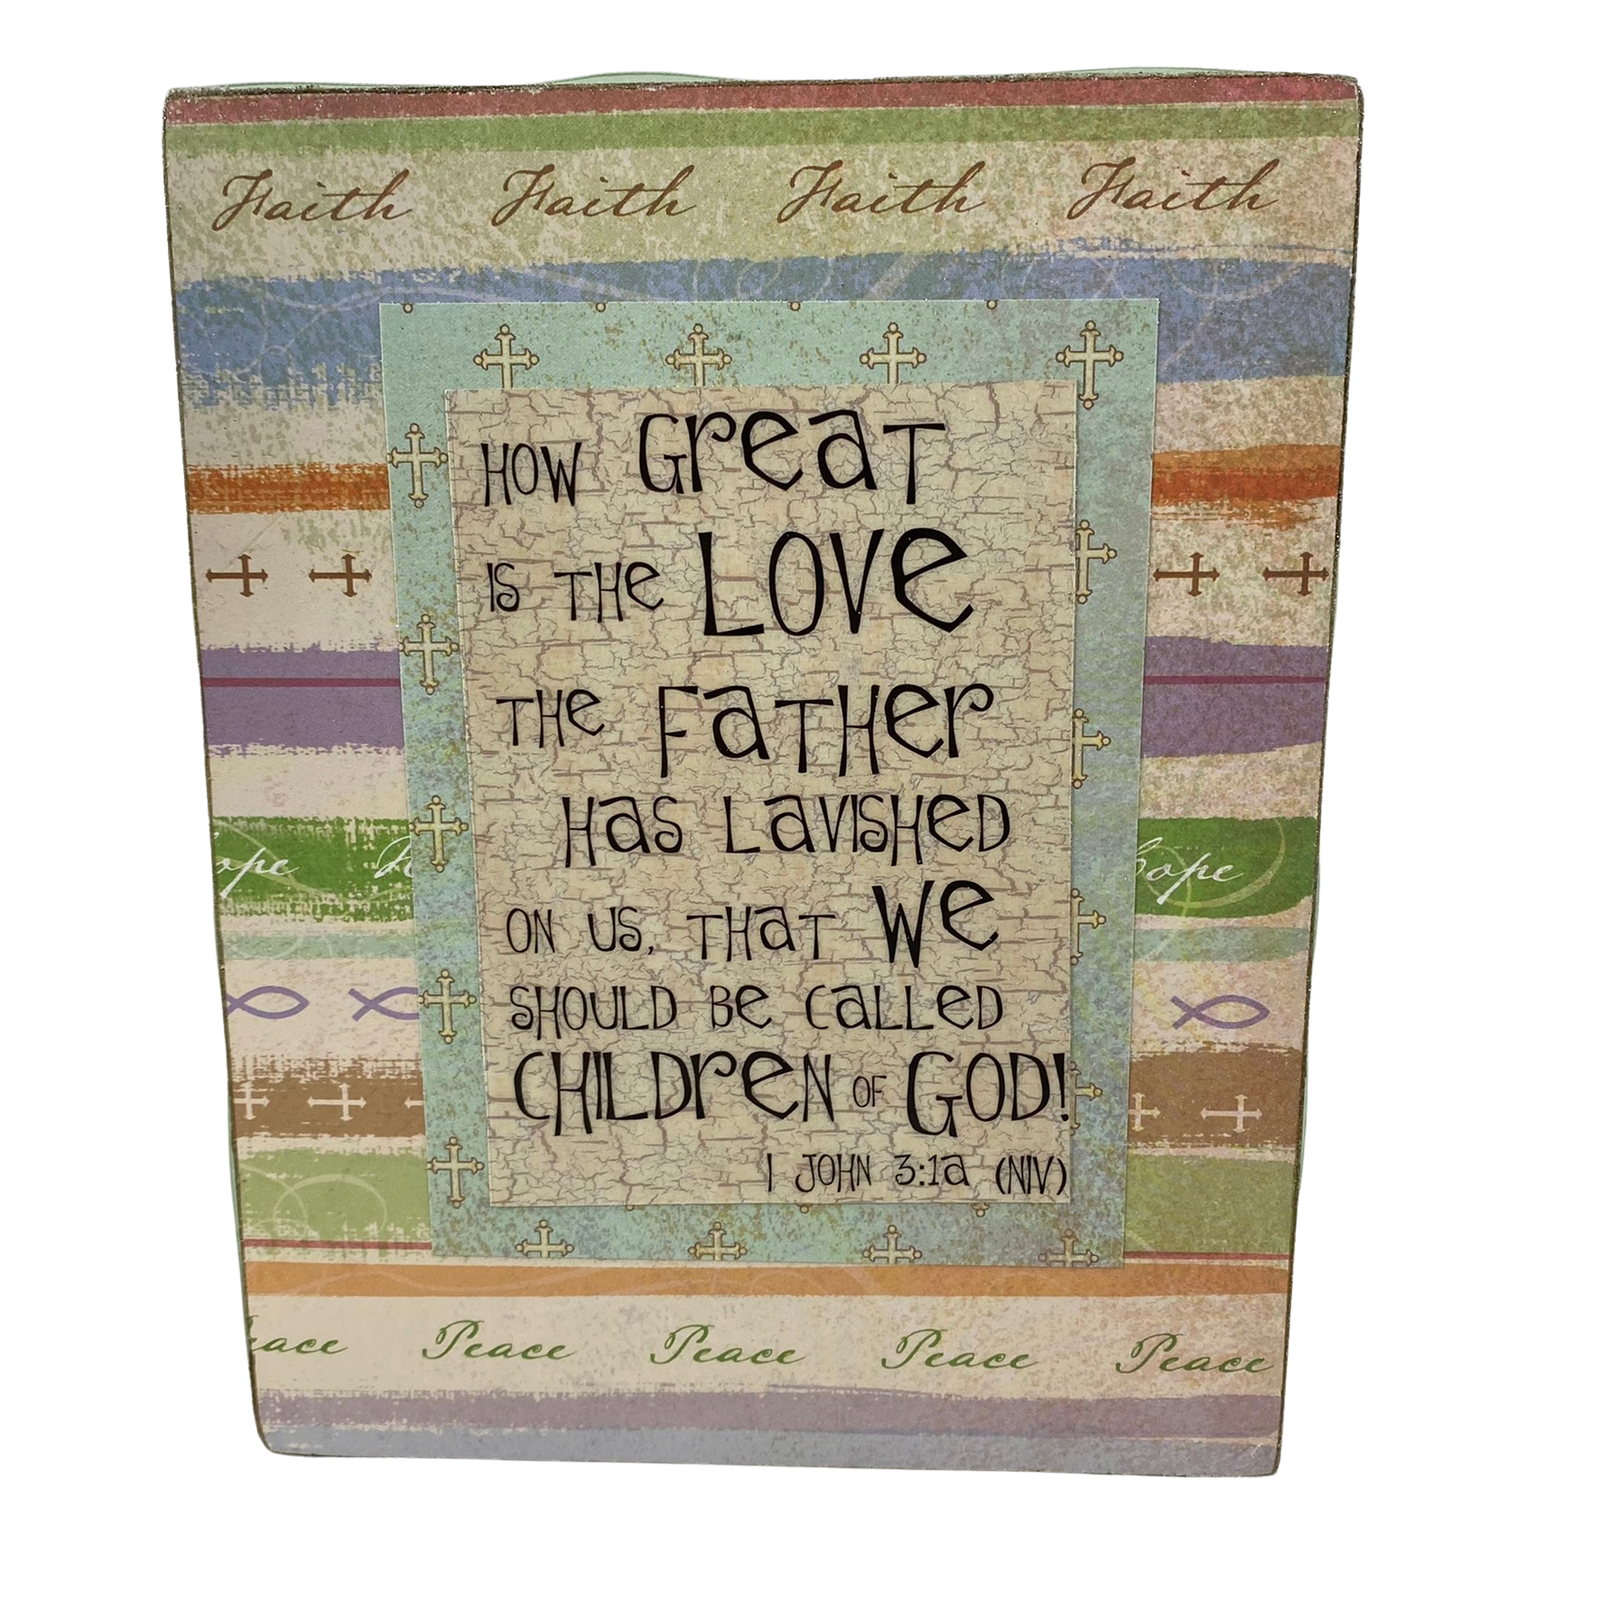 Faith Faith Faith Faith
HOW Great
IS THE LOVE
THE FATHER
HAS LAVISHED
ON US, THAT WE
SHOULD BE CALLED
CHILDREN OF GOD!
1 JOHN 3:1a (NIV)
ope H ope
eace Peace Peace Peace Peace